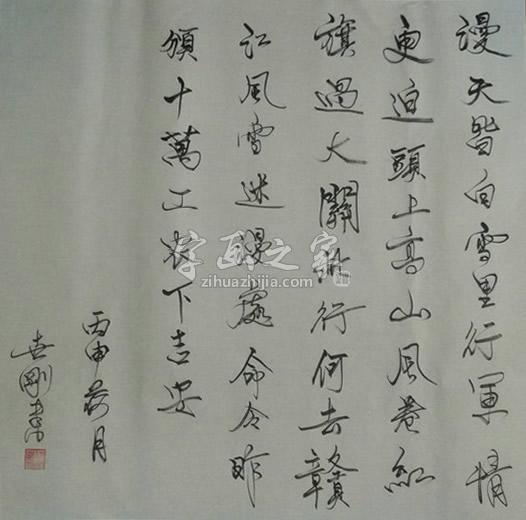 漫天皆白雪里行軍情
更迫頭上高山風卷紅
旗過大關此行何去贛
江風雪迷漫處命令昨
頒十萬工农下吉安
丙申荷月
世剛書
字画之家
zihuazhijia.com